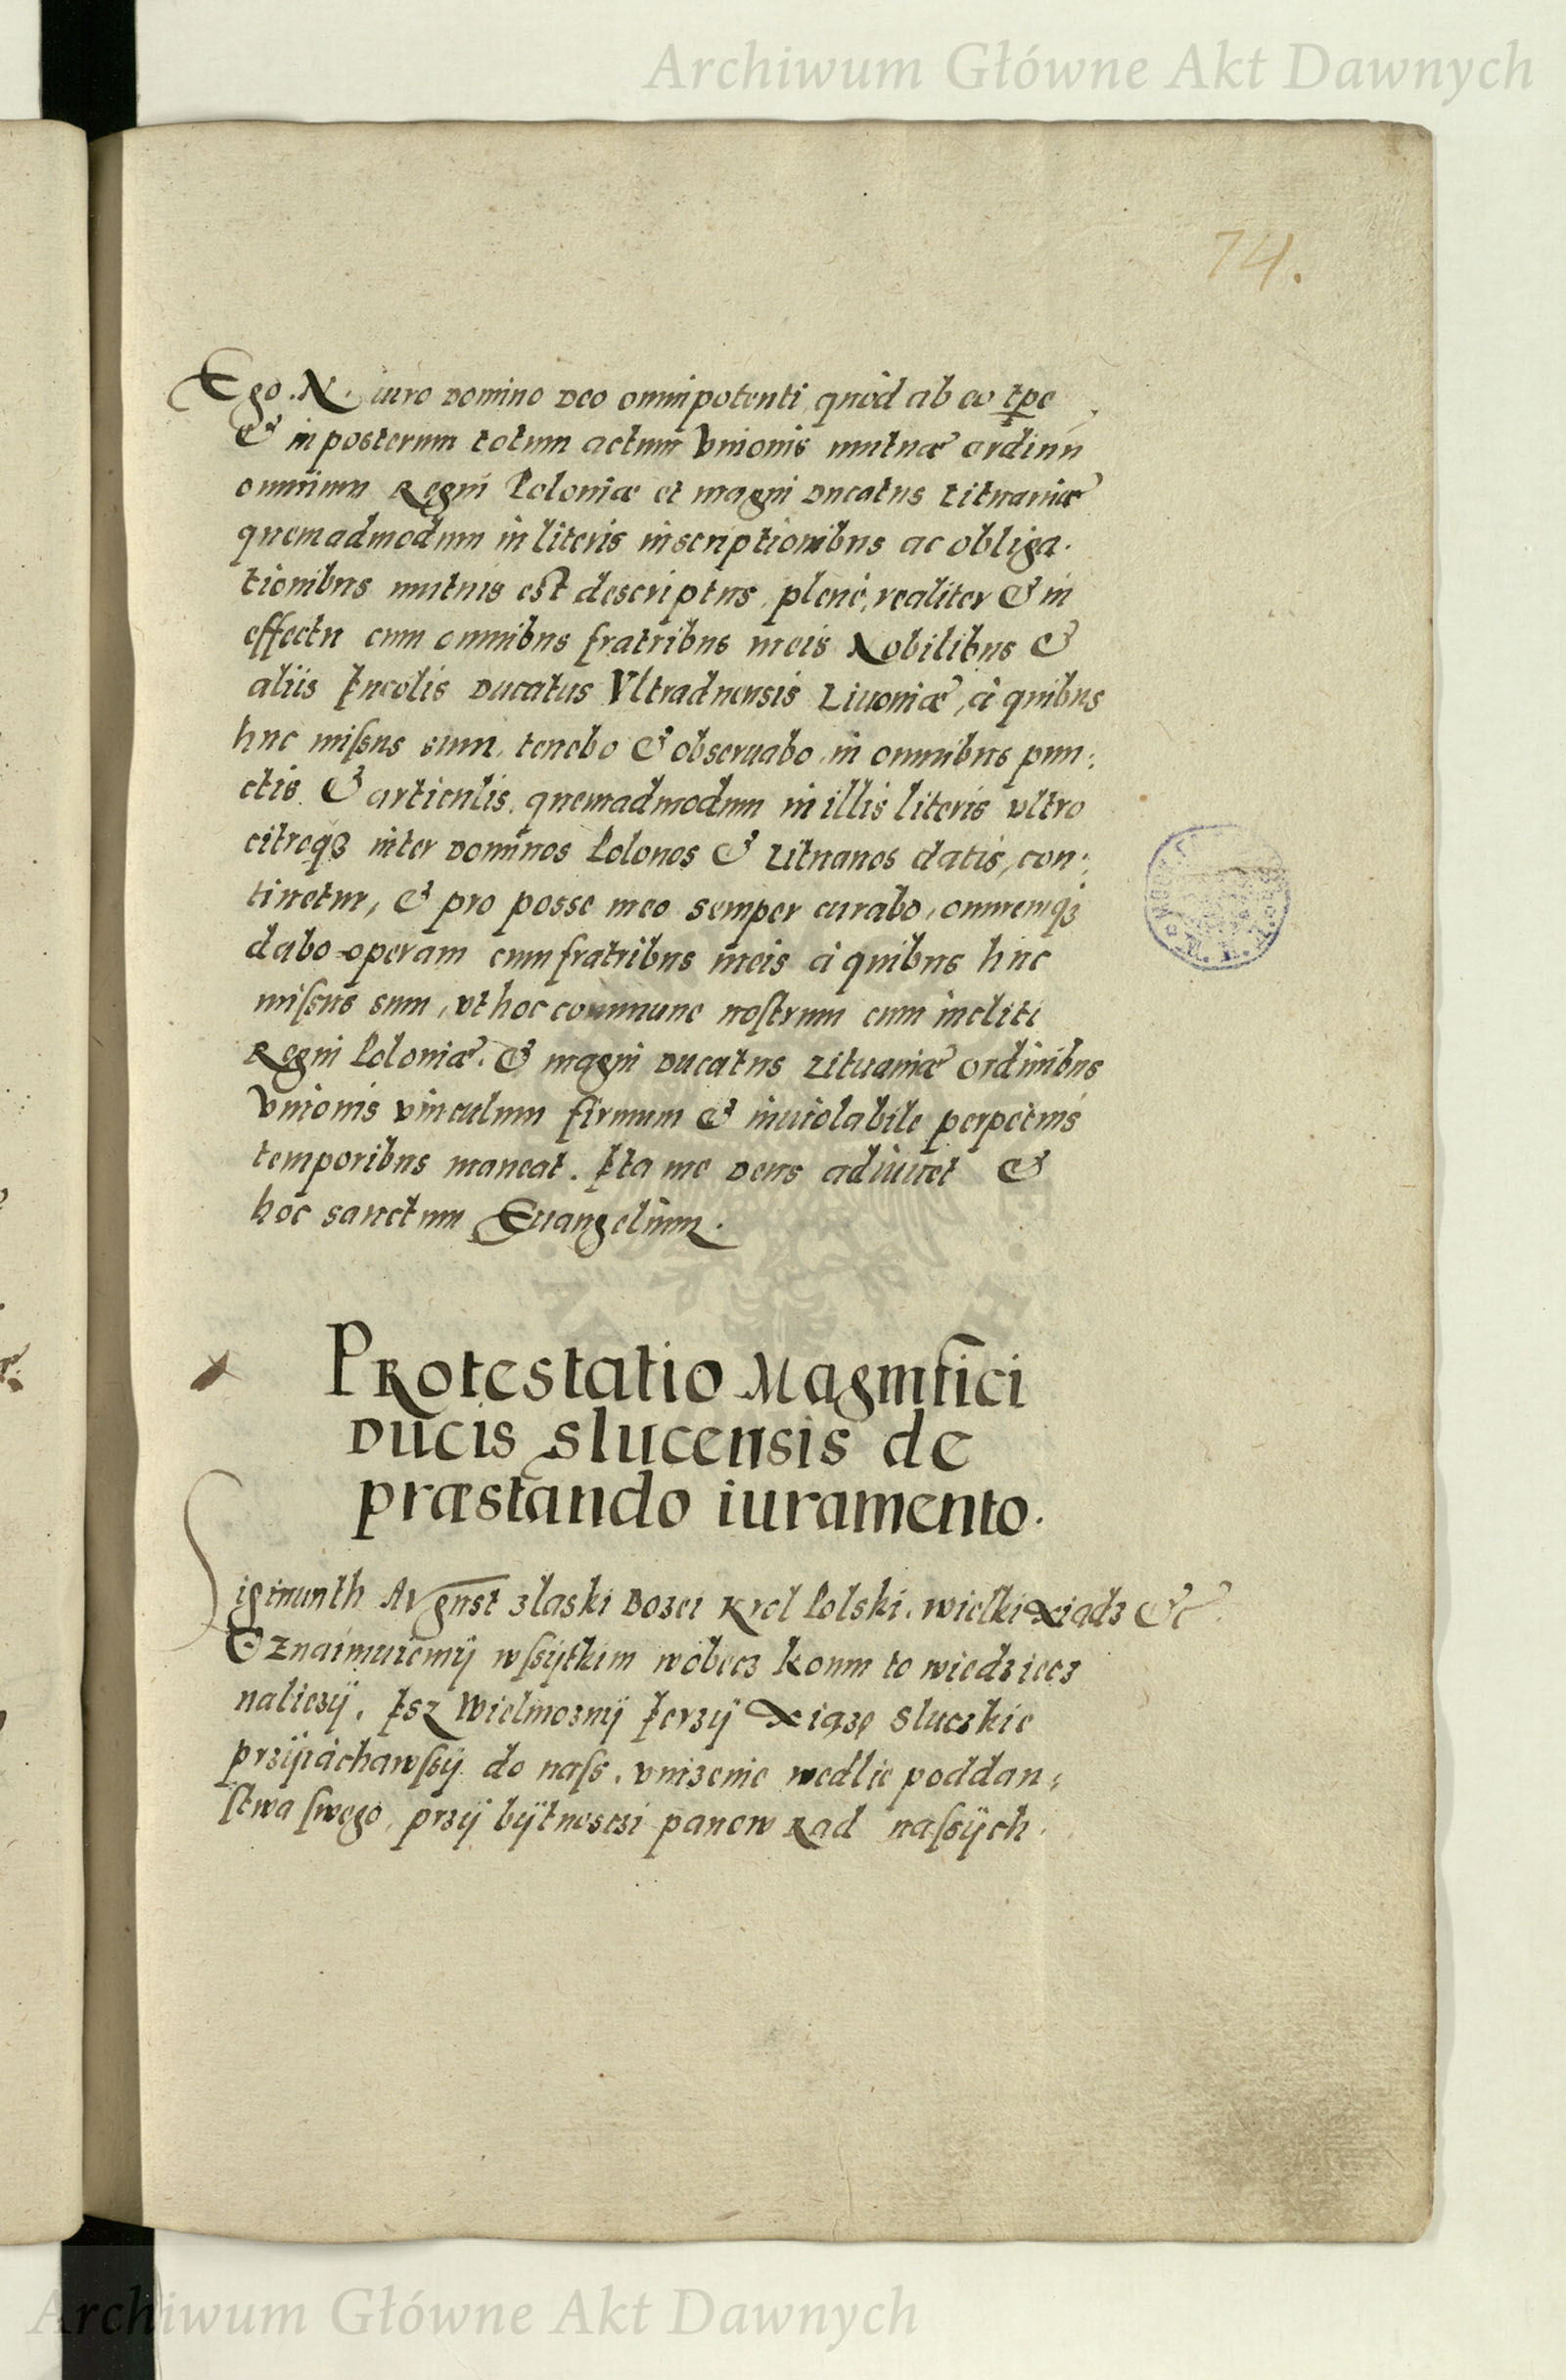 Archiwum Główne Akt Dawnych
74.
Ego .N. iuro Domino Deo omnipotenti, quòd ab eo tpe
& in posterum totum actum Vnionis mutuæ ordinũ
omnium Regni Poloniæ et magni Ducatus Lituaniæ
quemadmodum in literis inscriptionibus ac obliga-
tionibus mutuis est descriptus, plenè, realiter & in
effectu cum omnibus fratribus meis Nobilibus &
aliis Incolis Ducatus Vltradunensis Liuoniæ, à quibus
huc miſsus sum, tenebo & obseruabo, in omnibus pun:
ctis & articulis, quemadmodum in illis literis vltro
citroqꝫ inter Dominos Polonos & Lituanos datis, con:
tinetur, & pro posse meo semper curabo, omnemqꝫ
dabo operam cum fratribus meis à quibus huc
miſsus sum, vt hoc commune noſtrum cum incliti
Regni Poloniæ & magni Ducatus Lituaniæ ordinibus
Vnionis vinculum firmum & inuiolabile perpetuis
temporibus maneat. Ita me Deus adiuuet &
hoc sanctum Euangelium.
Protestatio Magnifici
Ducis Slucensis de
præstando iuramento.
Sigmunth Avgust zlaski Bozei Krol Polski, wielki Xiądz &c.
Oznaimuiemÿ wſsÿtkim wobecz komu to wiedziecz
naliezÿ, Isz Wielmoznÿ Ierzÿ Xiązę Sluczkie
przÿiachawſsÿ do naſs, vnizenie wedlie poddan:
ſtwa ſwego, przÿ bÿtnosczi panow Rad naſsÿch.
Archiwum Główne Akt Dawnych